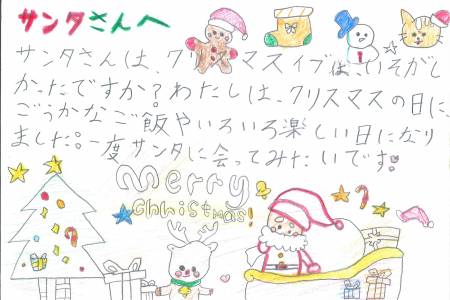 サンタさんへ
サンタさんは、クリスマスイブは、いそがし
かったですか？わたしは、クリスマスの日に、
ごうかなご飯やいろいろ楽しい日になり
ました。一度サンタに会ってみたいです。
Merry
Christmas!